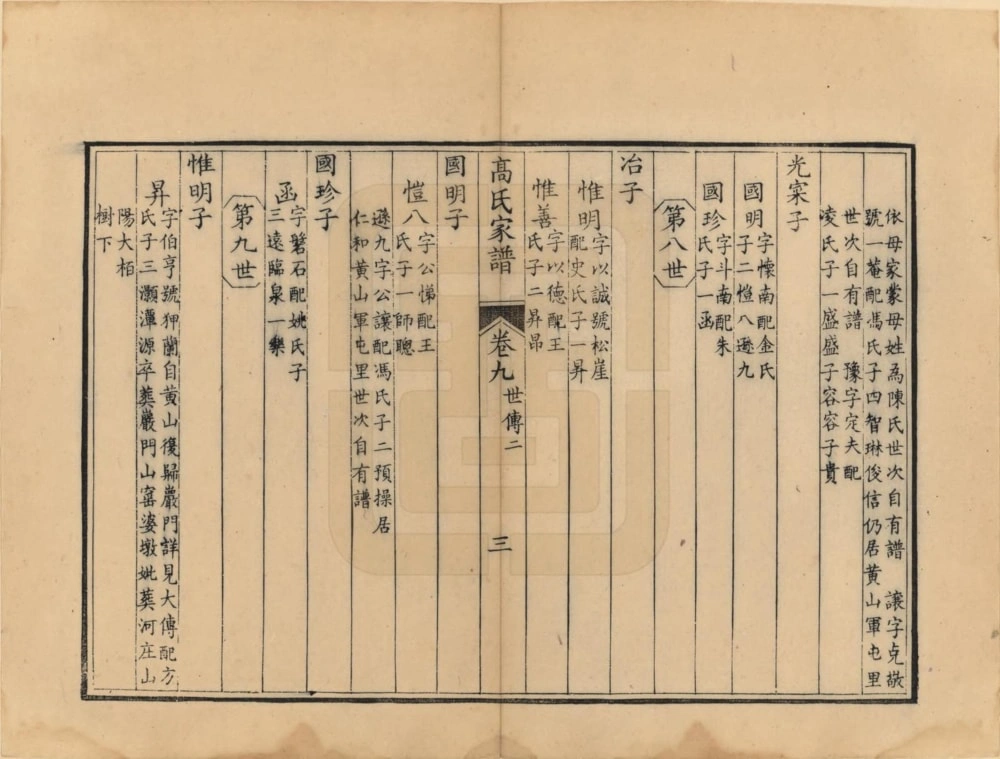 依母家蒙母姓為陳氏世次自有譜　讓字克敬
號一菴配馮氏子四智琳俊信仍居黄山軍屯里
世次自有譜　豫字定夫配
凌氏子一盛盛子容容子貴
光寀子
國明字懷南配金氏
子二愷八遜九
國珍字斗南配朱
氏子一函
第八世
冶子
惟明字以誠號松崖
配史氏子一昇
惟善字以德配王
氏子二昇昂
高氏家譜
卷九
世傳二
三
國明子
愷八字公悌配王
氏子一師聰
遜九字公讓配馮氏子二預操居
仁和黄山軍屯里世次自有譜
國珍子
函字磐石配姚氏子
三遠臨泉一樂
第九世
惟明子
昇字伯亨號狎蘭自黄山復歸巖門詳見大傳配方
氏子三灝潭源卒葬巖門山窰婆墩妣葬河庄山
陽大栢
樹下